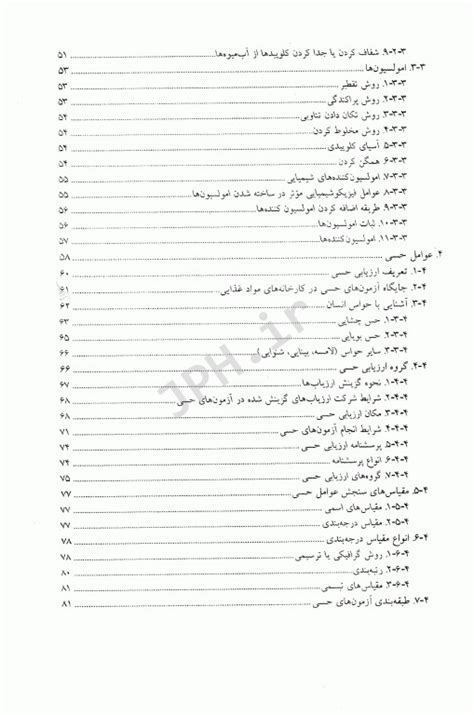 ۹-۲-۳. شفاف کردن یا جدا کردن کلوییدها از آب‌میوه‌ها ۵۱
۳-۳. امولسیون‌ها ۵۳
۱-۳-۳. روش تقطیر ۵۳
۲-۳-۳. روش پراکندگی ۵۳
۳-۳-۳. روش تکان دادن تناوبی ۵۴
۴-۳-۳. روش مخلوط کردن ۵۴
۵-۳-۳. آسیای کلوییدی ۵۴
۶-۳-۳. همگن کردن ۵۴
۷-۳-۳. امولسیون‌کننده‌های شیمیایی ۵۵
۸-۳-۳. عوامل فیزیکوشیمیایی مؤثر در ساخته شدن امولسیون‌ها ۵۵
۹-۳-۳. طریقه اضافه کردن امولسیون کننده‌ها ۵۶
۱۰-۳-۳. ثبات امولسیون‌ها ۵۶
۱۱-۳-۳. امولسیون‌کننده‌ها ۵۷
۴. عوامل حسی ۵۸
۱-۴. تعریف ارزیابی حسی ۶۰
۲-۴. جایگاه آزمون‌های حسی در کارخانه‌های مواد غذایی ۶۱
۳-۴. آشنایی با حواس انسان ۶۲
۱-۳-۴. حس چشایی ۶۳
۲-۳-۴. حس بویایی ۶۵
۳-۳-۴. سایر حواس (لامسه، بینایی، شنوایی) ۶۶
۴-۴. گروه ارزیابی حسی ۶۶
۱-۴-۴. نحوه گزینش ارزیاب‌ها ۶۷
۲-۴-۴. شرایط شرکت ارزیاب‌های گزینش شده در آزمون‌های حسی ۶۸
۳-۴-۴. مکان ارزیابی حسی ۶۸
۴-۴-۴. شرایط انجام آزمون‌های حسی ۷۱
۵-۴-۴. پرسشنامه ارزیابی حسی ۷۴
۶-۴-۴. انواع پرسشنامه ۷۴
۷-۴-۴. گروه‌های ارزیابی حسی ۷۵
۵-۴. مقیاس‌های سنجش عوامل حسی ۷۷
۱-۵-۴. مقیاس‌های اسمی ۷۷
۲-۵-۴. مقیاس درجه‌بندی ۷۷
۶-۴. انواع مقیاس درجه‌بندی ۷۸
۱-۶-۴. روش گرافیکی یا ترسیمی ۷۸
۲-۶-۴. رتبه‌بندی ۸۰
۳-۶-۴. مقیاس‌های تبسمی ۸۱
۷-۴. طبقه‌بندی آزمون‌های حسی ۸۱
JPH.ir